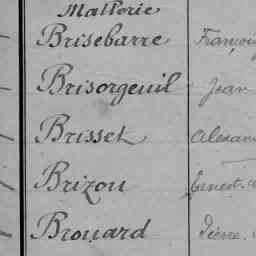 Mallorie
Brisebarre François
Brisorgeuil Jean
Brisset Alexan
Brizou Ernest
Brouard Pierre